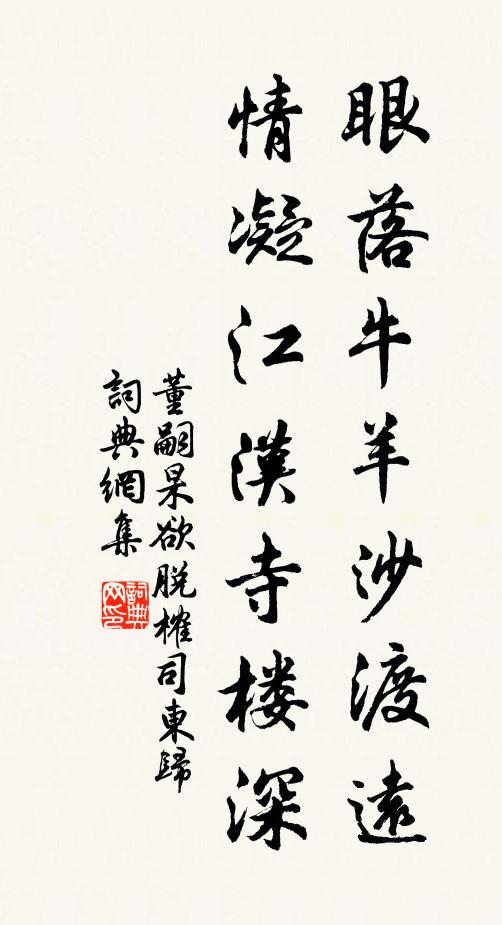 眼落牛羊沙渡遠
情凝江漢寺楼深
董嗣杲欲脫榷司東歸
詞典網集
詞典网印